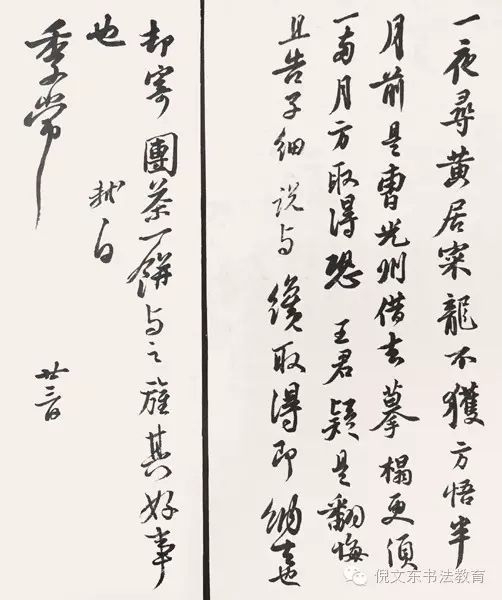 一夜尋黄居寀龍不獲方悟半
月前是曹光州借去摹搨更須
一兩月方取得恐王君疑是翻悔
且告子細說与纔取得即納去也
却寄團茶一餅与之旌其好事
也 軾白
季常 廿三日
倪文东书法教育